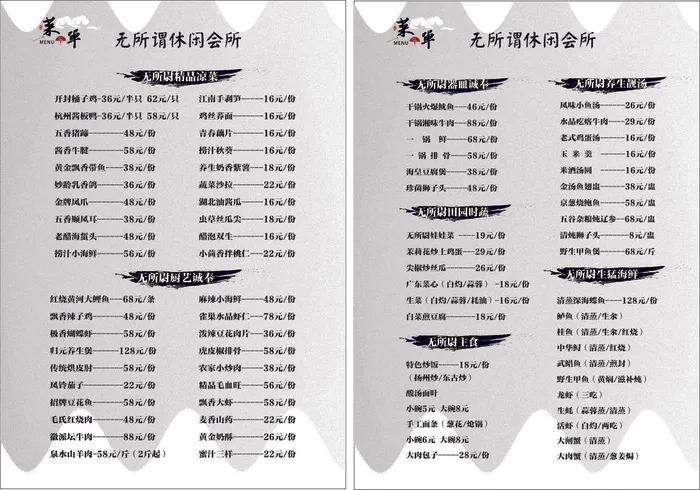 菜单
MENU
无所谓休闲会所
无所尉精品凉菜
开封桶子鸡-36元/半只 62元/只
杭州酱板鸭-36元/半只 58元/只
五香猪蹄------48元/份
酱香牛腱------58元/份
黄金飘香带鱼---38元/份
妙龄乳香鸽----36元/份
金牌凤爪------48元/份
五香顺风耳----38元/份
老醋海蛰头----48元/份
捞汁小海鲜----56元/份
江南手剥笋----16元/份
鸡丝荞面------16元/份
青春藕片------16元/份
捞汁秋葵------16元/份
养生奶香紫薯---18元/份
蔬菜沙拉------22元/份
湖北油酱瓜----16元/份
虫草丝瓜尖----18元/份
醋泡双生------16元/份
小茴香拌桃仁---22元/份
无所尉厨艺诚奉
红烧黄河大鲤鱼---68元/条
飘香辣子鸡----48元/份
极香蝴蝶虾----58元/份
归元养生煲----128元/份
传统烘皮肘----58元/份
风铃茄子------22元/份
招牌豆花鱼----58元/份
毛氏红烧肉----48元/份
徽派坛牛肉----88元/份
泉水山羊肉-58元/斤（2斤起）
麻辣小海鲜----48元/份
雀果水晶虾仁---78元/份
泼辣豆花肉片---36元/份
虎皮椒排骨----58元/份
农家小炒肉----38元/份
精品毛血旺----56元/份
飘香大虾------58元/份
麦香山药------22元/份
黄金奶酥------26元/份
蜜汁三样------22元/份
菜单
MENU
无所谓休闲会所
无所尉器皿诚奉
干锅火爆鱿鱼---46元/份
干锅湘味牛肉---88元/份
一锅鲜------68元/份
一锅排骨----58元/份
海皇豆腐煲----38元/份
珍菌狮子头----48元/份
无所尉田园时蔬
无所尉娃娃菜 ----19元/份
茉莉花炒土鸡蛋---29元/份
尖椒炒丝瓜-----26元/份
广东菜心（白灼/蒜蓉）-18元/份
生菜（白灼/蒜蓉/耗油）-16元/份
白菜煎豆腐-----18元/份
无所尉主食
特色炒饭-----18元/份
（扬州炒/东古炒）
酸汤面叶
小碗5元 大碗8元
手工面条（葱花/炝锅）
小碗6元 大碗8元
大肉包子----28元/份
无所尉养生靓汤
风味小鱼汤----26元/份
水晶疙瘩牛肉---29元/份
老式鸡蛋汤----16元/份
玉米羹-----16元/份
米酒汤圆 ----16元/份
金汤鱼翅盅----38元/盅
京葱烧鲍鱼----58元/盅
五谷杂粮炖辽参--68元/份
清炖狮子头-----8元/盅
野生甲鱼煲----68元/斤
无所尉生猛海鲜
清蒸深海鲽鱼---128元/份
鲈鱼（清蒸/生汆）
桂鱼（清蒸/生汆/红烧）
中华鲟（清蒸/红烧）
武昌鱼（清蒸/煎封）
野生甲鱼（黄焖/滋补炖）
龙虾（三吃）
生蚝（蒜蓉蒸/清蒸）
活虾（白灼/两吃）
大闸蟹（清蒸）
大肉蟹（清蒸/葱姜焗）